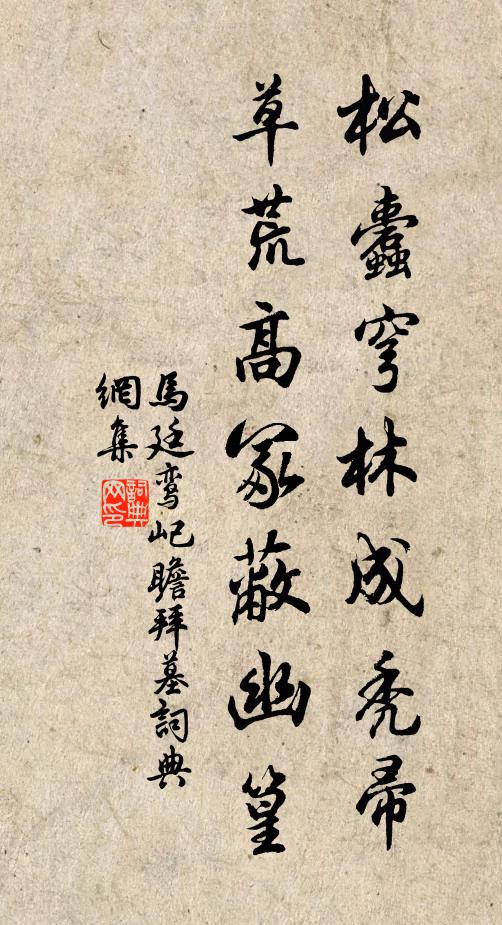 松蠹穹林成秃帚
草荒高冢蔽幽篁
馬廷鸾屺瞻拜墓詞典
網集
詞典網印